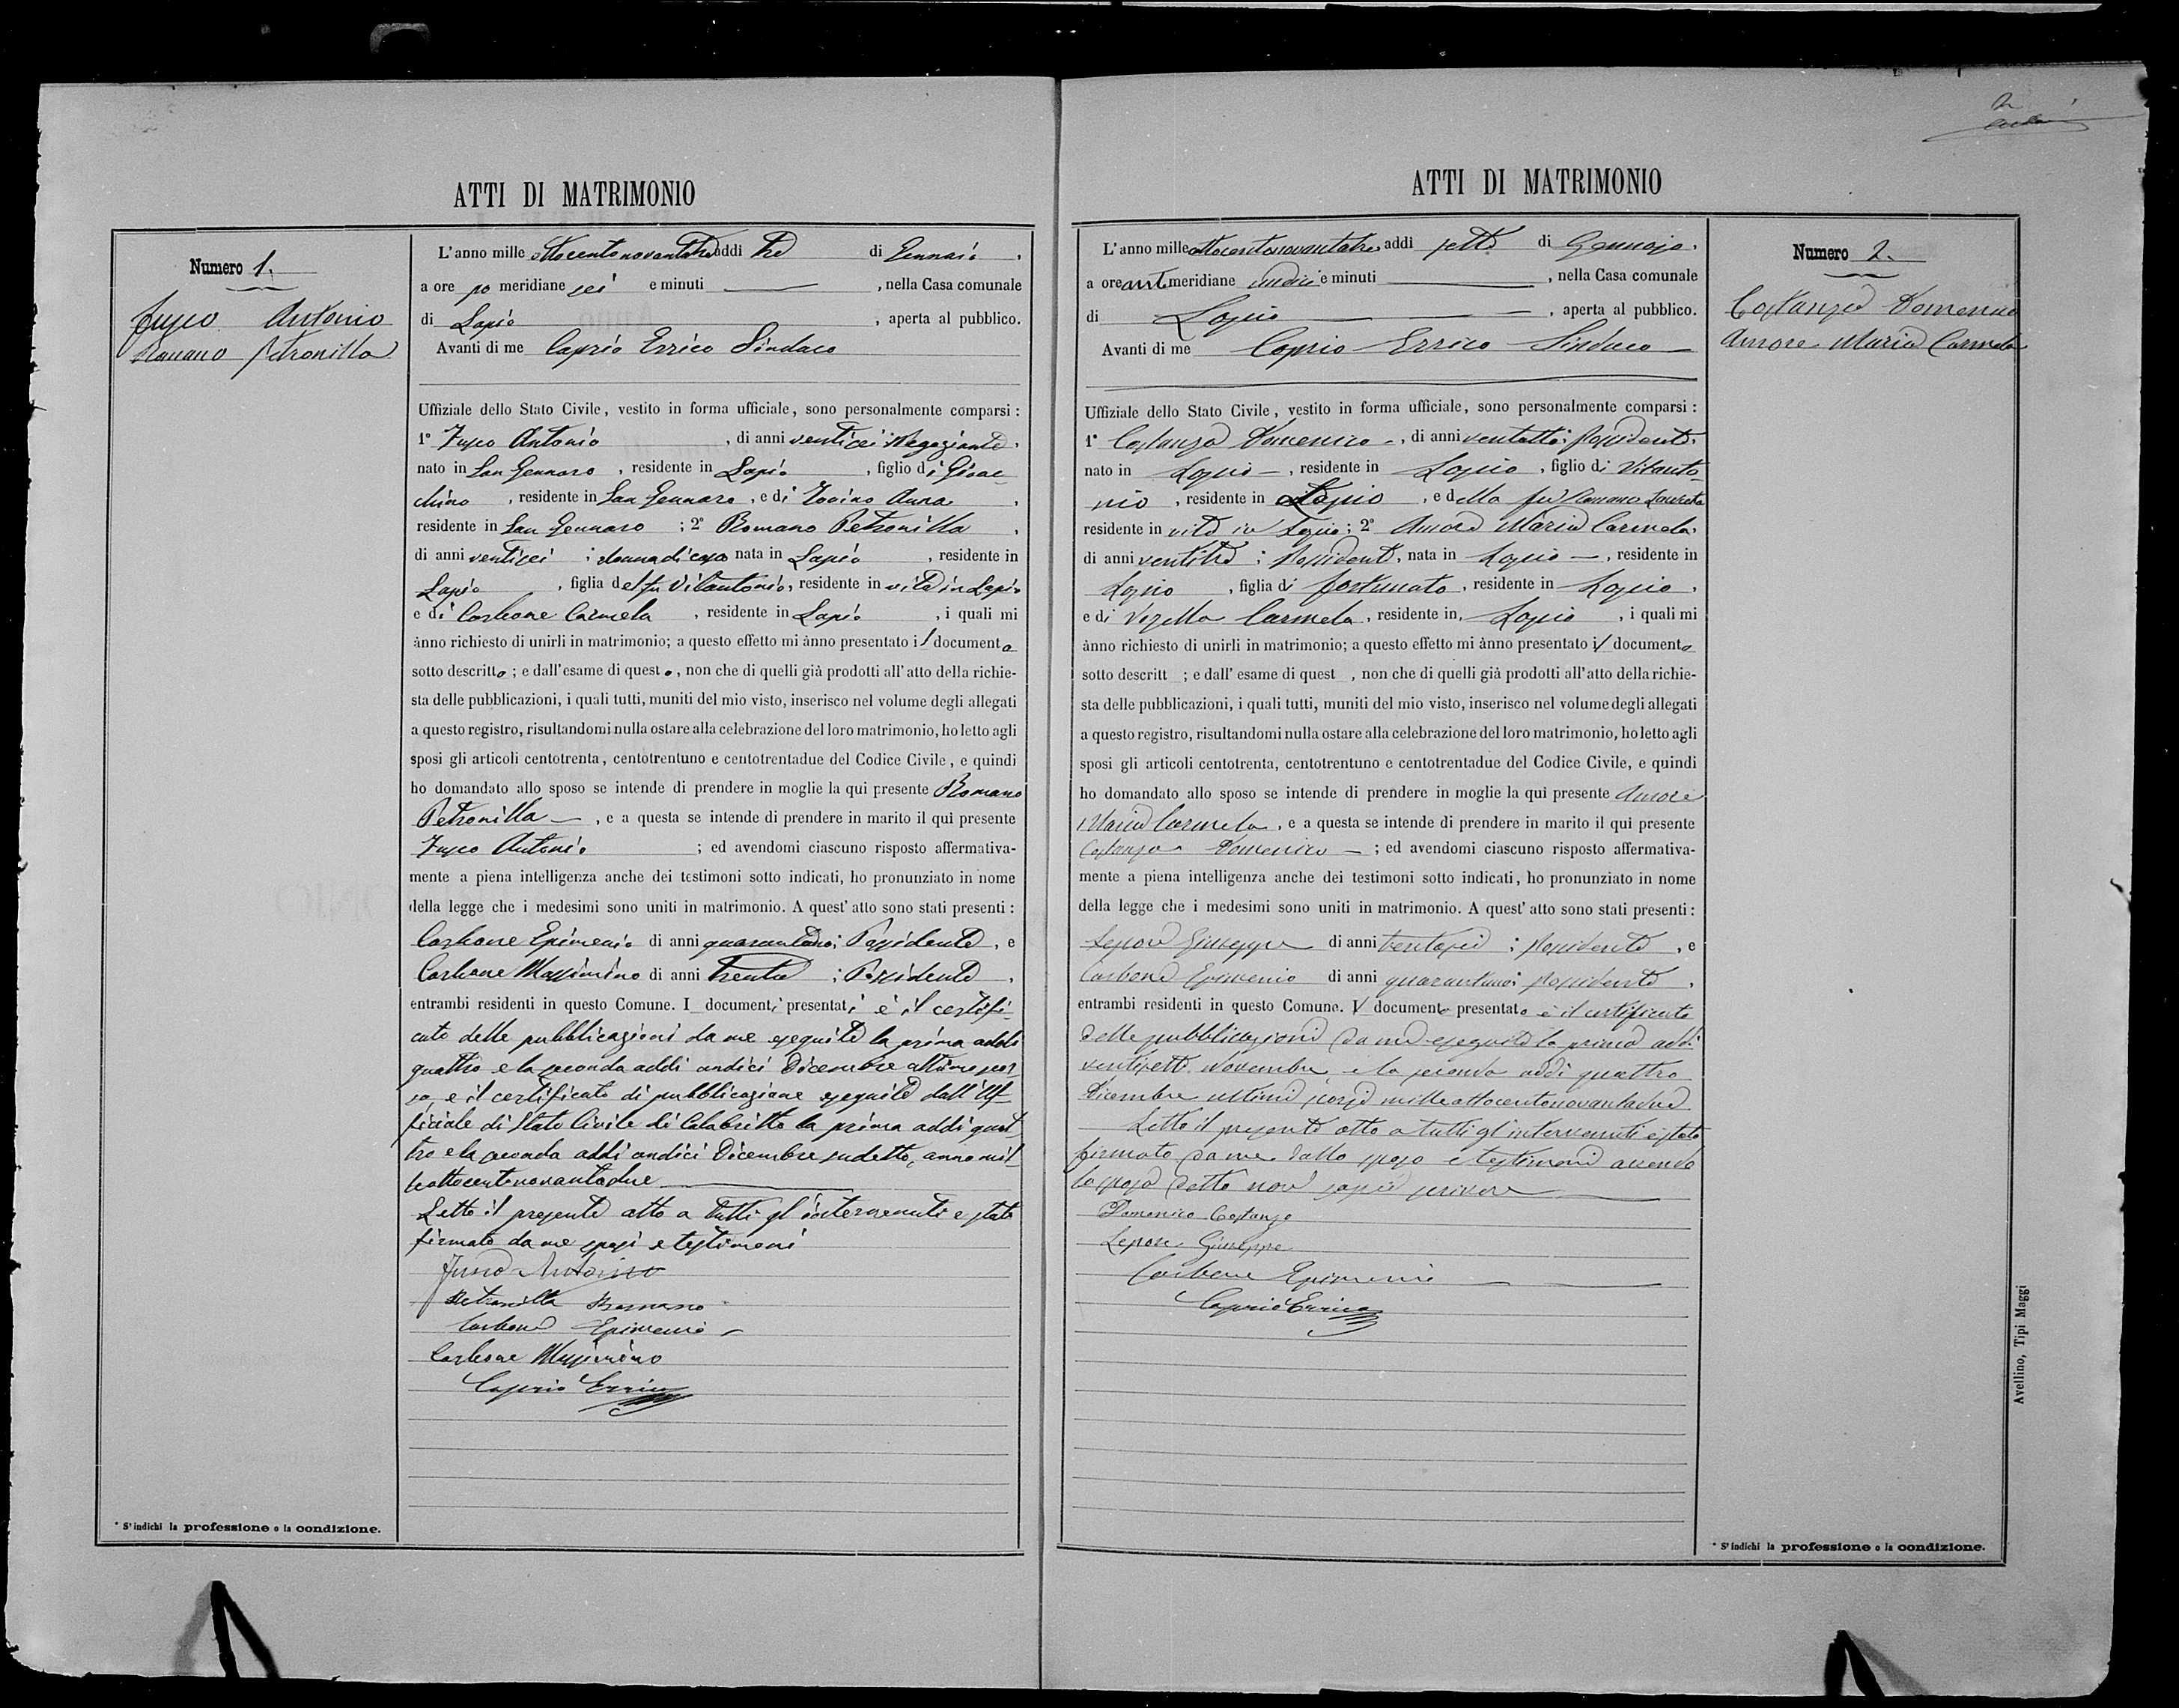 ATTI DI MATRIMONIO
Numero 1.
Fusco Antonio
Romano Petronilla
L'anno mille ottocentonovantatre addì tre di Gennaio,
a ore po meridiane sei e minuti , nella Casa comunale
di Lapio , aperta al pubblico.
Avanti di me Caprio Errico Sindaco
Uffiziale dello Stato Civile, vestito in forma ufficiale, sono personalmente comparsi:
1° Fusco Antonio , di anni ventisei; Negoziante,
nato in San Gennaro , residente in Lapio , figlio di Gioac
chino , residente in San Gennaro , e di Iovino Anna ,
residente in San Gennaro ; 2° Romano Petronilla ,
di anni ventisei ; donna di casa nata in Lapio , residente in
Lapio , figlia del fu Vitantonio, residente in vita in Lapio
e di Carbone Carmela , residente in Lapio , i quali mi
ànno richiesto di unirli in matrimonio; a questo effetto mi ànno presentato il documento
sotto descritto; e dall'esame di questo, non che di quelli già prodotti all'atto della richie-
sta delle pubblicazioni, i quali tutti, muniti del mio visto, inserisco nel volume degli allegati
a questo registro, risultandomi nulla ostare alla celebrazione del loro matrimonio, ho letto agli
sposi gli articoli centotrenta, centotrentuno e centotrentadue del Codice Civile, e quindi
ho domandato allo sposo se intende di prendere in moglie la qui presente Romano
Petronilla , e a questa se intende di prendere in marito il qui presente
Fusco Antonio ; ed avendomi ciascuno risposto affermativa-
mente a piena intelligenza anche dei testimoni sotto indicati, ho pronunziato in nome
della legge che i medesimi sono uniti in matrimonio. A quest'atto sono stati presenti:
Carbone Epimenio di anni quarantuno; Possidente , e
Carbone Massimino di anni trenta ; Possidente ,
entrambi residenti in questo Comune. I documenti presentati è il certifi-
cato delle pubblicazioni da me eseguite la prima addì
quattro e la seconda addì undici Dicembre ultimo scor-
so, e il certificato di pubblicazione eseguite dall'Uf-
ficiale di Stato Civile di Calabritto la prima addì quat-
tro e la seconda addì undici Dicembre sudetto, anno mil-
leottocentonovantadue
Letto il presente atto a tutti gl'intervenuti e stato
firmato da me sposi e testimoni
Fusco Antonio
Petronilla Romano
Carbone Epimenio
Carbone Massimino
Caprio Errico
* S'indichi la professione o la condizione.
ATTI DI MATRIMONIO
Numero 2.
Costanza Domenico
Amore Maria Carmela
L'anno mille ottocentonovantatre addì sette di Gennajo,
a ore ant meridiane undici e minuti , nella Casa comunale
di Lapio , aperta al pubblico.
Avanti di me Caprio Errico Sindaco
Uffiziale dello Stato Civile, vestito in forma ufficiale, sono personalmente comparsi:
1° Costanza Domenico , di anni ventotto; Possidente,
nato in Lapio , residente in Lapio , figlio di Vitanto
nio , residente in Lapio , e della fu Romano
residente in vita in Lapio; 2° Amore Maria Carmela,
di anni ventitre ; Possidente, nata in Lapio , residente in
Lapio , figlia di Fortunato, residente in Lapio ,
e di Vozella Carmela, residente in Lapio , i quali mi
ànno richiesto di unirli in matrimonio; a questo effetto mi ànno presentato il documento
sotto descritt ; e dall'esame di quest , non che di quelli già prodotti all'atto della richie-
sta delle pubblicazioni, i quali tutti, muniti del mio visto, inserisco nel volume degli allegati
a questo registro, risultandomi nulla ostare alla celebrazione del loro matrimonio, ho letto agli
sposi gli articoli centotrenta, centotrentuno e centotrentadue del Codice Civile, e quindi
ho domandato allo sposo se intende di prendere in moglie la qui presente Amore
Maria Carmela, e a questa se intende di prendere in marito il qui presente
Costanza Domenico ; ed avendomi ciascuno risposto affermativa-
mente a piena intelligenza anche dei testimoni sotto indicati, ho pronunziato in nome
della legge che i medesimi sono uniti in matrimonio. A quest'atto sono stati presenti:
Lepore Giuseppe di anni trentasei ; Possidente , e
Carbone Epimenio di anni quarantuno; Possidente ,
entrambi residenti in questo Comune. Il documento presentato è il certificato
delle pubblicazioni da me eseguite la prima addì
ventisette Novembre e la seconda addì quattro
Dicembre ultimi scorsi milleottocentonovantadue
Letto il presente atto a tutti gl'intervenuti è stato
firmato da me dallo sposo e testimoni avendo
la sposa detto non sapere scrivere
Domenico Costanza
Lepore Giuseppe
Carbone Epimenio
Caprio Errico
* S'indichi la professione o la condizione.
Avellino, Tipi Maggi